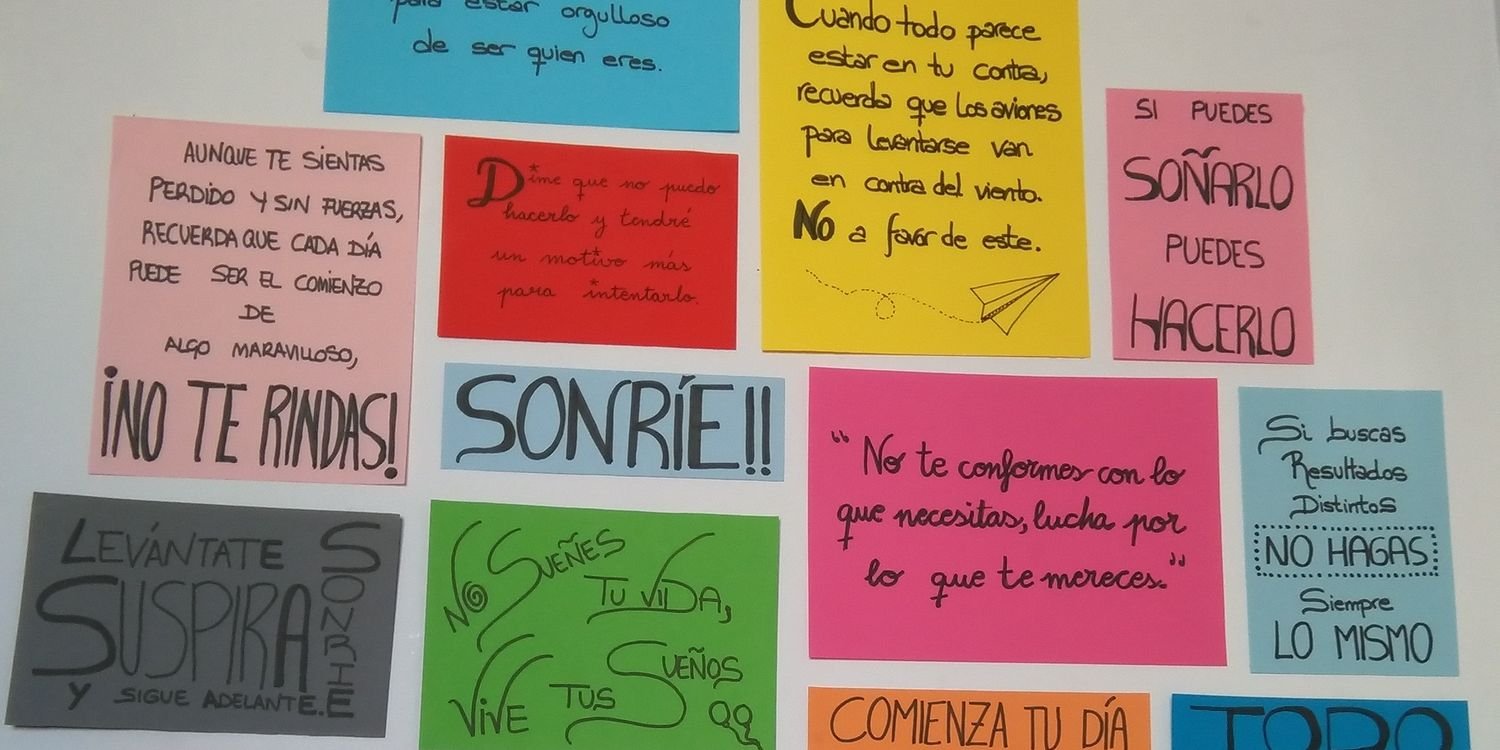 para estar orgulloso
de ser quien eres.
Cuando todo parece
estar en tu contra,
recuerda que los aviones
para levantarse van
en contra del viento.
NO a favor de este.
SI PUEDES
SOÑARLO
PUEDES
HACERLO
AUNQUE TE SIENTAS
PERDIDO Y SIN FUERZAS,
RECUERDA QUE CADA DÍA
PUEDE SER EL COMIENZO
DE
ALGO MARAVILLOSO,
¡NO TE RINDAS!
Dime que no puedo
hacerlo y tendré
un motivo más
para intentarlo.
SONRÍE!!
"No te conformes con lo
que necesitas, lucha por
lo que te mereces."
Si buscas
Resultados
Distintos
NO HAGAS
Siempre
LO MISMO
LEVÁNTATE
SUSPIRA
SONRIE
Y SIGUE ADELANTE.
NO SUEÑES
TU VIDA,
VIVE TUS SUEÑOS
COMIENZA TU DÍA
TODO